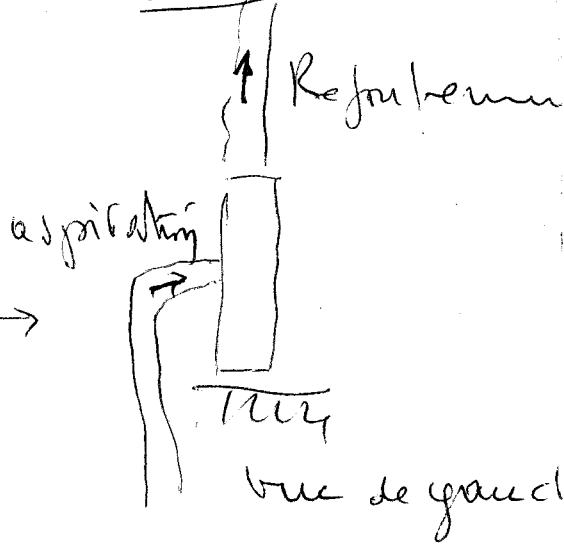 Refoulemen
aspiration
vue de gaucl